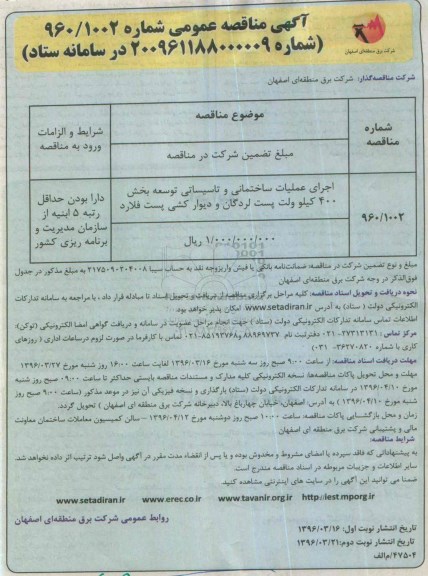 آگهی مناقصه عمومی شماره ۹۶۰/۱۰۰۲
(شماره ۲۰۰۹۶۱۱۸۸۰۰۰۰۰۹ در سامانه ستاد)
شرکت برق منطقه‌ای اصفهان
شرکت مناقصه‌گذار: شرکت برق منطقه‌ای اصفهان
شماره مناقصه
موضوع مناقصه
مبلغ تضمین شرکت در مناقصه
شرایط و الزامات
ورود به مناقصه
۹۶۰/۱۰۰۲
اجرای عملیات ساختمانی و تاسیساتی توسعه بخش
۴۰۰ کیلو ولت پست لردگان و دیوار کشی پست فلارد
۱/۰۰۰/۰۰۰/۰۰۰ ریال
دارا بودن حداقل
رتبه ۵ ابنیه از
سازمان مدیریت و
برنامه ریزی کشور
مبلغ و نوع تضمین شرکت در مناقصه: ضمانت‌نامه بانکی یا فیش واریزوجه نقد به حساب سیبا ۲۱۷۵۰۹۰۲۰۴۰۰۸ به مبلغ مذکور در جدول
فوق‌الذکر در وجه شرکت برق منطقه‌ای اصفهان
نحوه دریافت و تحویل اسناد مناقصه: کلیه مراحل برگزاری مناقصه از دریافت و تحویل اسناد تا مبادله قرار داد ، با مراجعه به سامانه تدارکات
الکترونیکی دولت ( ستاد) به آدرس www.setadiran.ir امکان پذیر خواهد بود.
اطلاعات تماس سامانه تدارکات الکترونیکی دولت (ستاد ) جهت انجام مراحل عضویت در سامانه و دریافت گواهی امضا الکترونیکی (توکن):
مرکز تماس : ۳۷۳۱۳۱۳۱-۰۲۱ دفترثبت نام ۸۸۹۶۹۷۳۷ و ۸۵۱۹۳۷۶۸-۰۲۱ تماس با کارفرما در صورت لزوم درساعات اداری ( روزهای
کاری با شماره ۳۶۲۷۰۸۲۰ ۰۳۱)
مهلت دریافت اسناد مناقصه: از ساعت ۹:۰۰ صبح روز سه شنبه مورخ ۱۳۹۶/۰۳/۱۶ لغایت ساعت ۱۶:۰۰ روز شنبه مورخ ۱۳۹۶/۰۳/۲۷
مهلت و محل تحویل پاکات مناقصه‌ها: نسخه الکترونیکی کلیه مدارک و مستندات مناقصه بایستی حداکثر تا ساعت ۰۹:۰۰ صبح روز شنبه
مورخ ۱۳۹۶/۰۴/۱۰ در سامانه تدارکات الکترونیکی دولت (ستاد) بارگذاری و نسخه فیزیکی آن نیز در موعد مذکور (ساعت ۹:۰۰ صبح روز
شنبه مورخ ۱۳۹۶/۰۴/۱۰ ) به آدرس اصفهان، خیابان چهارباغ بالا، دبیرخانه شرکت برق منطقه ای اصفهان ) تحویل گردد.
زمان و محل بازگشایی پاکات مناقصه: ساعت ۱۰:۰۰ صبح روز دوشنبه مورخ ۱۳۹۶/۰۴/۱۲ – سالن کمیسیون معاملات ساختمان معاونت
مالی و پشتیبانی شرکت برق منطقه ای اصفهان
شرایط مناقصه:
به پیشنهاداتی که فاقد سپرده یا امضای مشروط و مخدوش بوده و یا پس از انقضاء مدت مقرر در آگهی واصل شود ترتیب اثر داده نخواهد شد.
سایر اطلاعات و جزییات مربوطه در اسناد مناقصه مندرج است.
ضمنا می توانید این آگهی را در سایت های اینترنتی مشاهده کنید.
www.setadiran.ir www.erec.co.ir www.tavanir.org.ir http://iest.mporg.ir
روابط عمومی شرکت برق منطقه‌ای اصفهان
تاریخ انتشار نوبت اول: ۱۳۹۶/۰۳/۱۶
تاریخ انتشار نوبت دوم: ۱۳۹۶/۰۳/۲۱
۴۷۵۰۴/م‌الف